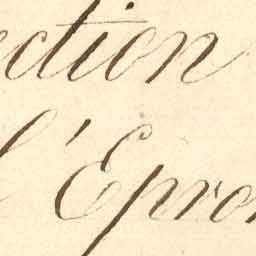 ection
l'Epro